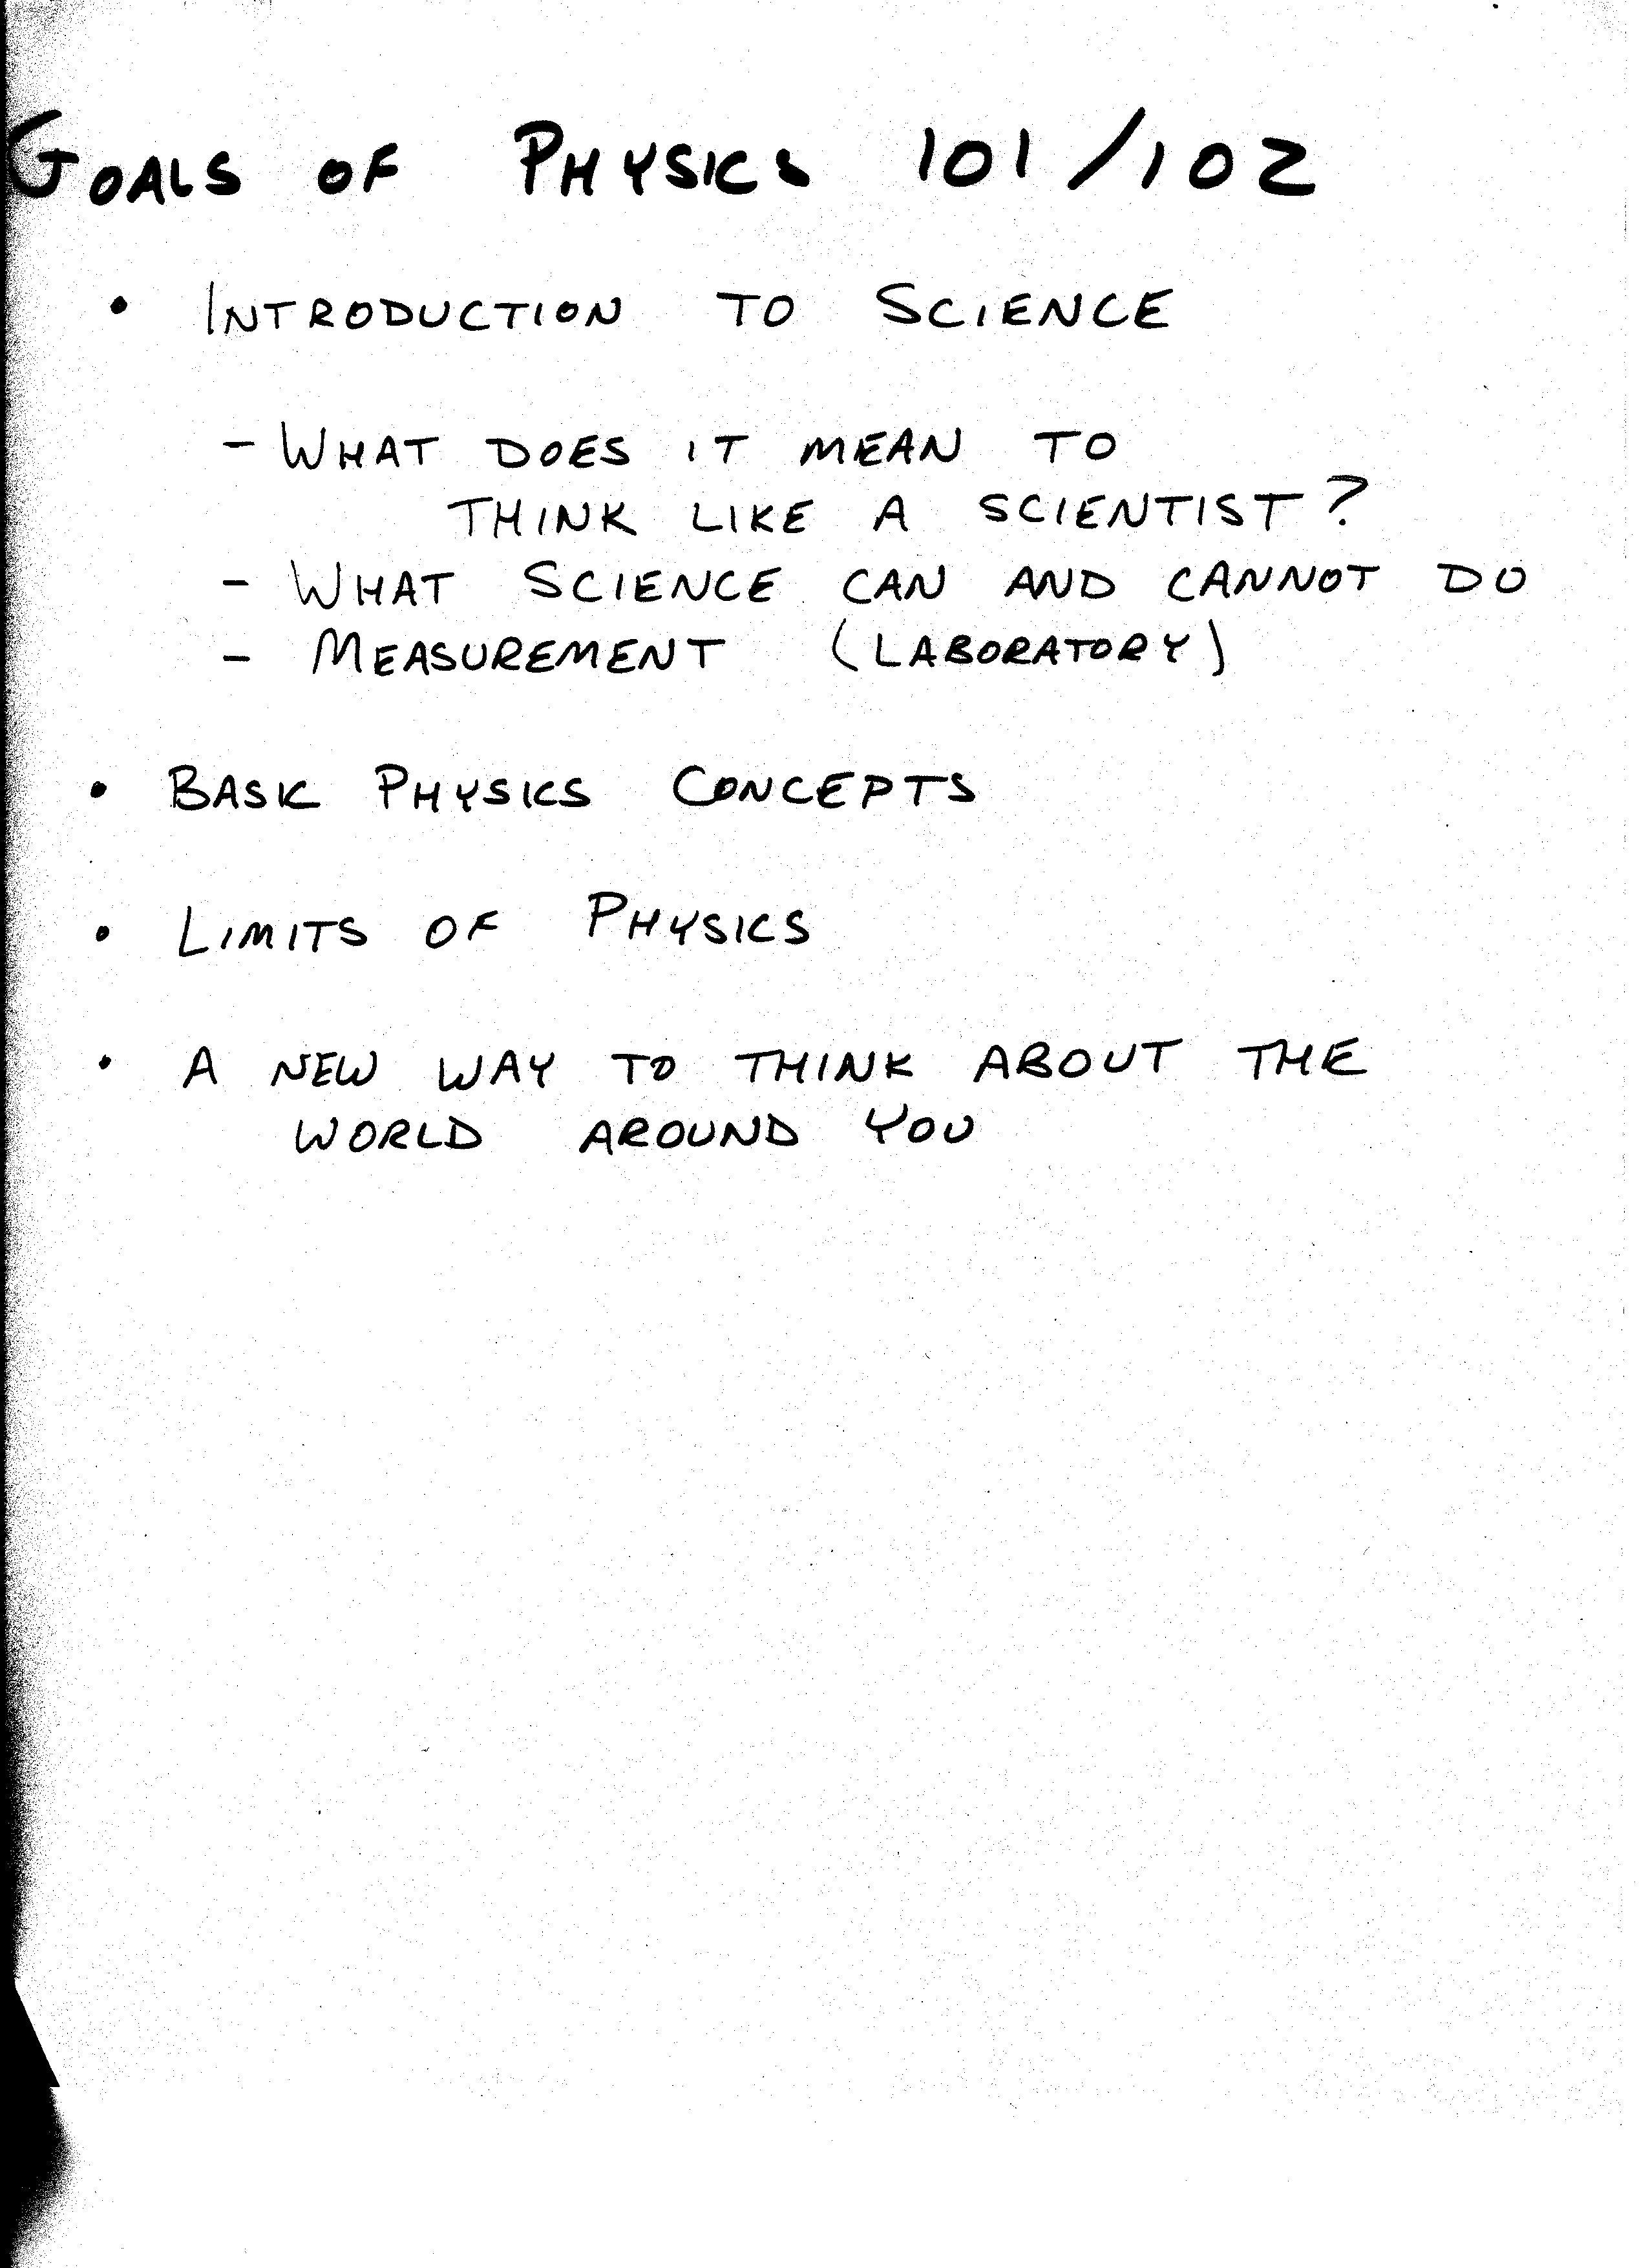 GOALS OF PHYSICS 101/102
• INTRODUCTION TO SCIENCE
- WHAT DOES IT MEAN TO
THINK LIKE A SCIENTIST?
- WHAT SCIENCE CAN AND CANNOT DO
- MEASUREMENT (LABORATORY)
• BASIC PHYSICS CONCEPTS
• LIMITS OF PHYSICS
• A NEW WAY TO THINK ABOUT THE
WORLD AROUND YOU